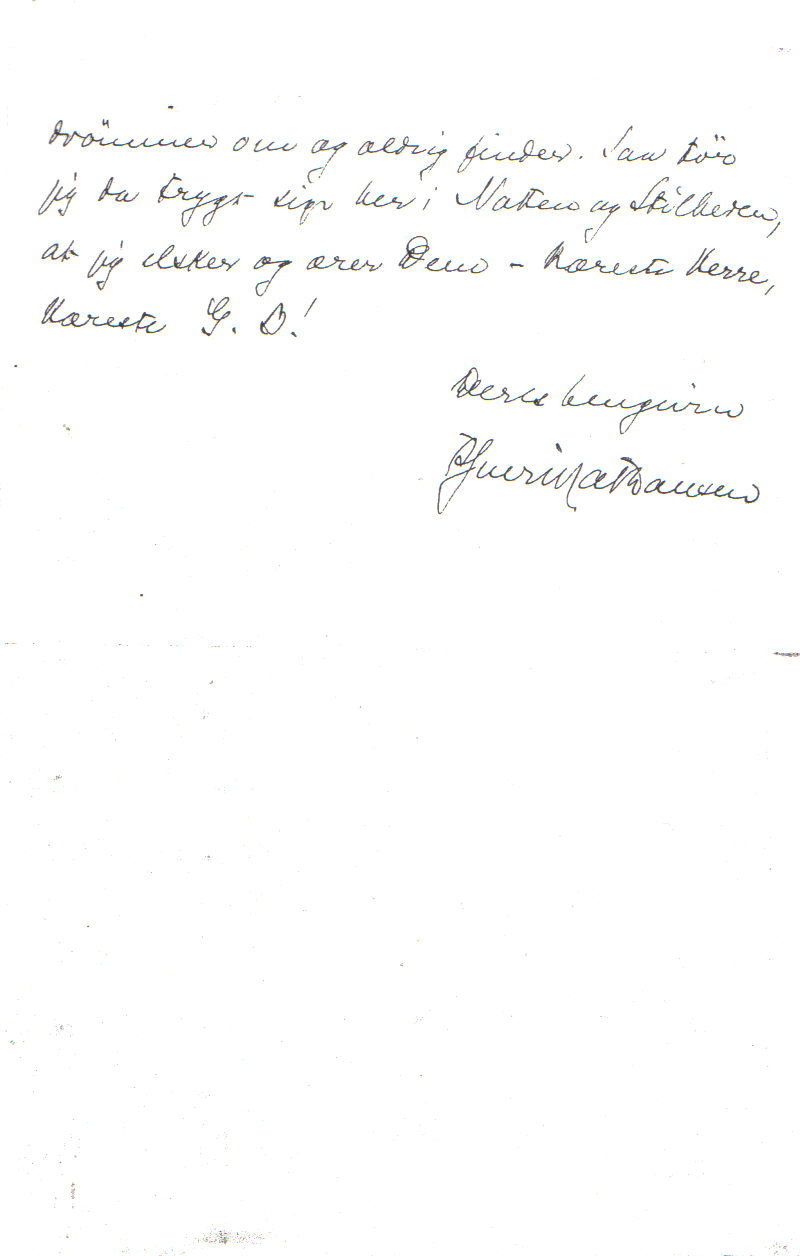 drömmer om og aldrig finder. Saa tör
jeg da trygt sige her i Natten og Stilheden,
at jeg elsker og ærer Dem – Kæreste Herre,
Kæreste G. D!
Deres hengivne